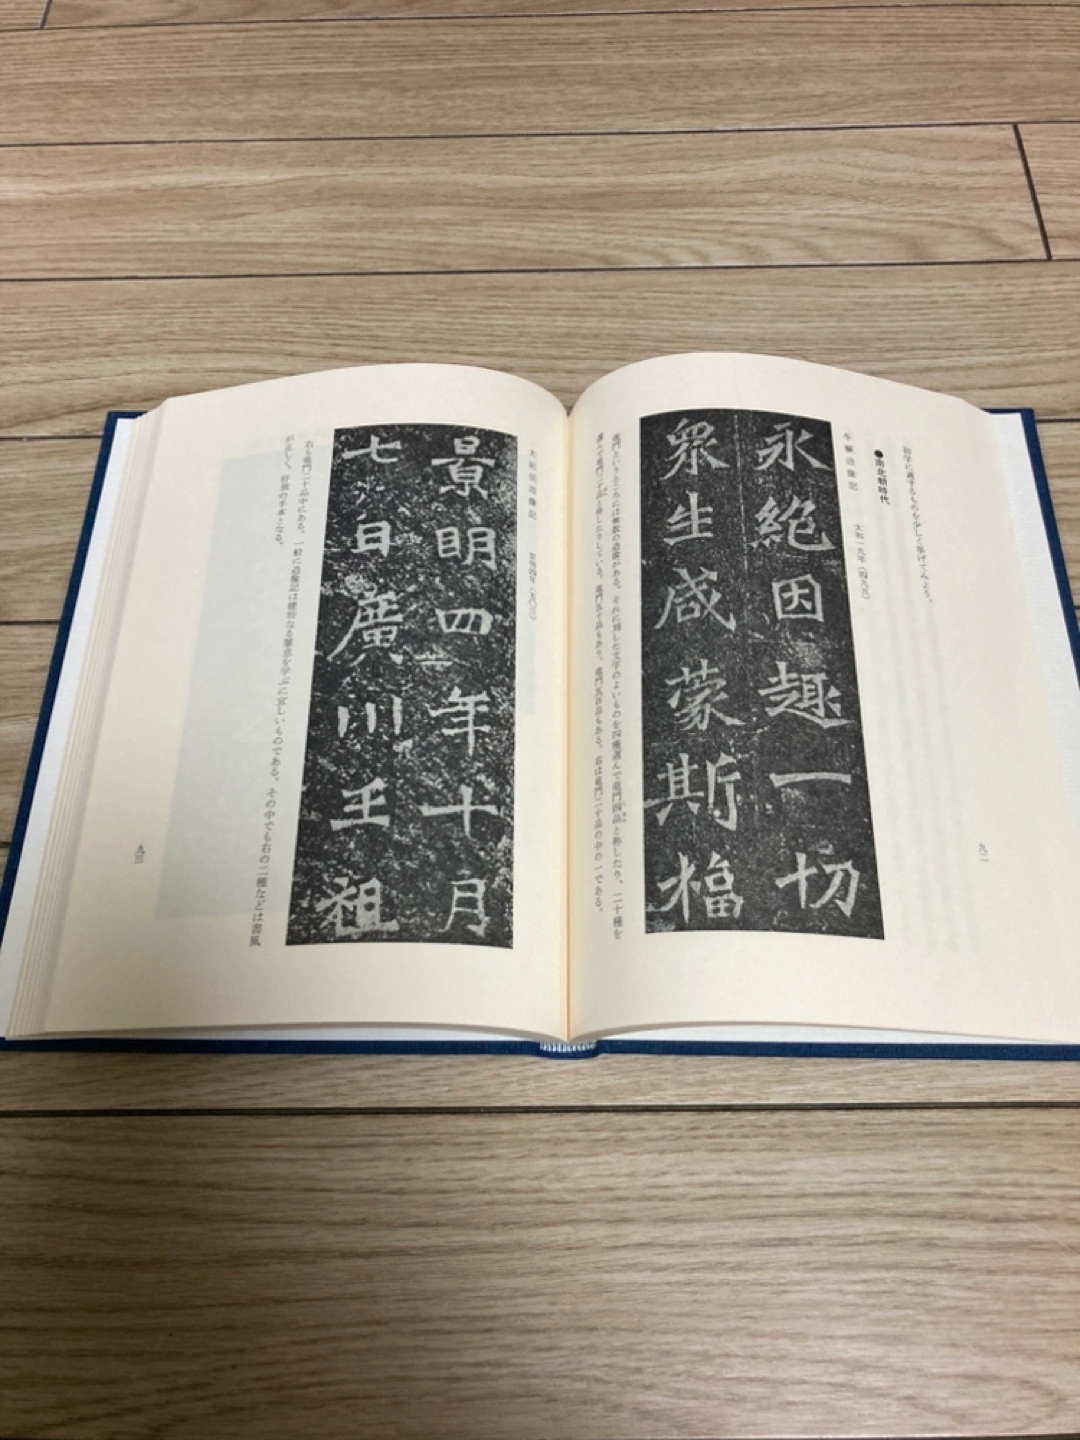 初学に適するものを少しく挙げてみよう。
●南北朝時代
牛橛造像記　太和一九年（四九五）
永絶因趣一切
衆生咸蒙斯福
龍門というところには佛教の造像がある。それに刻した文字のよいものを四種選んで龍門四品と称したり、二十種を
選んで龍門二十品と称したりしている。龍門五十品もあり、龍門五百品もある。右は龍門二十品の中の一である。
九二
造像記　景明四年（五〇三）
景明四年十月
七日廣川王祖
右も龍門二十品中にある。一般に造像記は雄勁なる筆意を学ぶに宜しいものである。その中でも右の二種などは書風
が正しく、好箇の手本となる。
九三